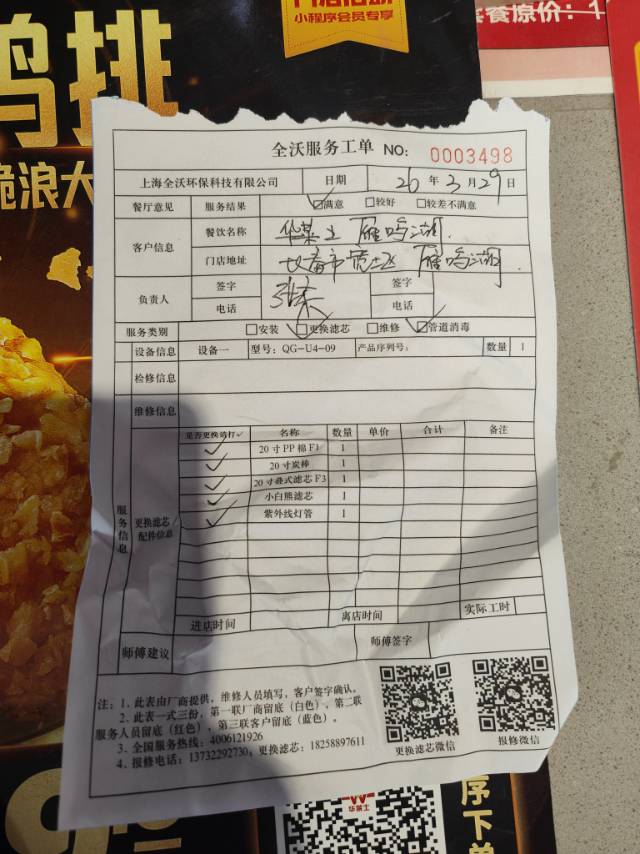 鸡排
脆浪大
小程序会员专享
套餐原价：1
全沃服务工单 NO: 0003498
上海全沃环保科技有限公司 日期 26 年 3 月 29 日
餐厅意见 服务结果 ☑满意 □较好 □较差不满意
客户信息 餐饮名称 华莱士 雁鸣湖
门店地址 雁鸣湖
负责人 签字 签字
电话 电话
服务类别 □安装 ☑更换滤芯 □维修 ☑管道消毒
设备信息 设备一 型号: QG-U4-09 产品序列号: 数量 1
检修信息
维修信息
服务信息 更换滤芯配件信息
是否更换请打✓ 名称 数量 单价 合计 备注
✓ 20寸PP棉F1 1
✓ 20寸炭棒 1
✓ 20寸叠式滤芯F3 1
✓ 小白熊滤芯 1
✓ 紫外线灯管 1
进店时间 离店时间 实际工时
师傅建议 师傅签字
注：1、此表由厂商提供，维修人员填写，客户签字确认。
2、此表一式三份，第一联厂商留底（白色），第二联
服务人员留底（红色），第三联客户留底（蓝色）。
3、全国服务热线：4006121926
4、报修电话：13732292730，更换滤芯：18258897611
更换滤芯微信 报修微信
华莱士
序下单